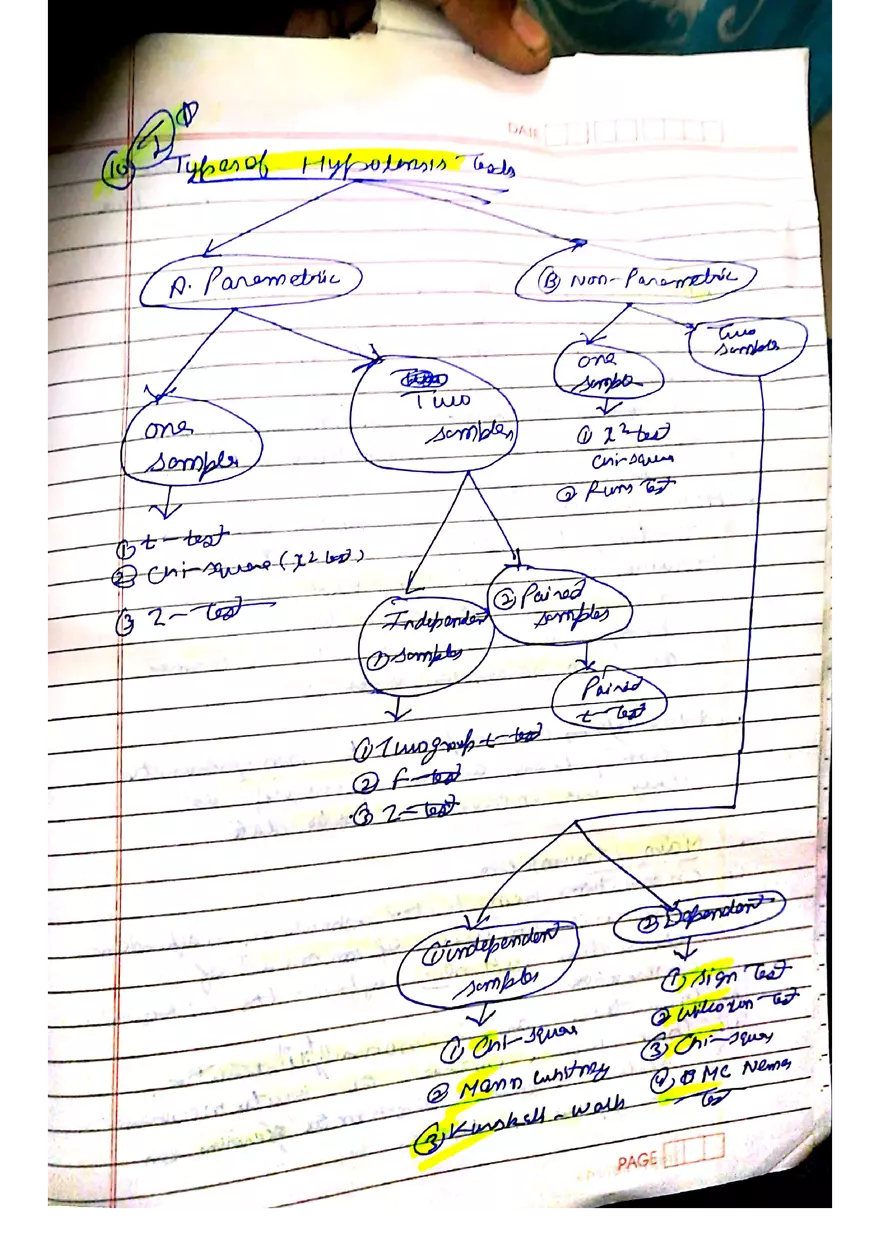 DATE
10
Types of Hypotensis Tests
A. Parametric
B Non-Parametric
one
samples
Two
samples
one
sample
Two
samples
① t-test
② Chi-square (x2 test)
③ Z-test
① x2-test
Chi-square
② Runs Test
Independent
① samples
② Paired
samples
Paired
t-test
① Two group t-test
② F-test
③ Z-test
① independent
samples
② Dependent
① Chi-square
② Mann Whitney
③ Kruskell-Walls
① Sign Test
② Wilcoxon Test
③ Chi-square
④ MC Nemes
Test
PAGE